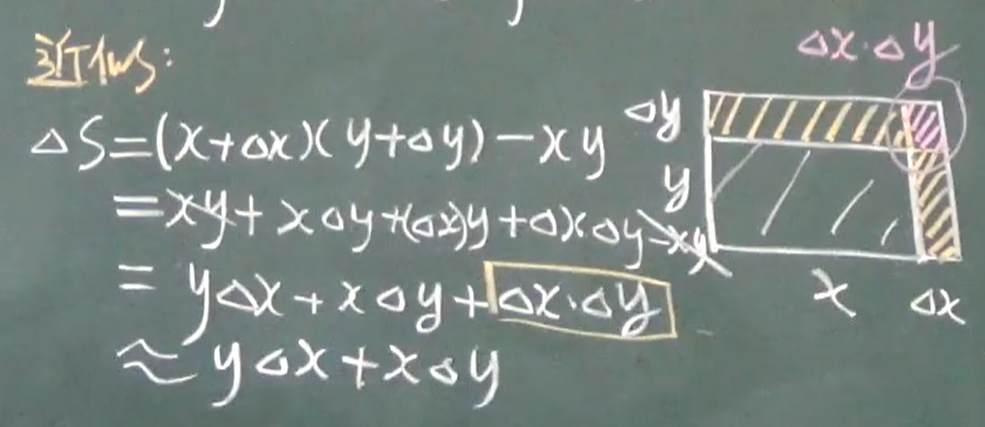 近似:
ΔS=(x+Δx)(y+Δy)-xy
=xy+xΔy+(Δx)y+ΔxΔy-xy
=yΔx+xΔy+Δx·Δy
≈yΔx+xΔy
Δx·Δy
Δy
y
x
Δx